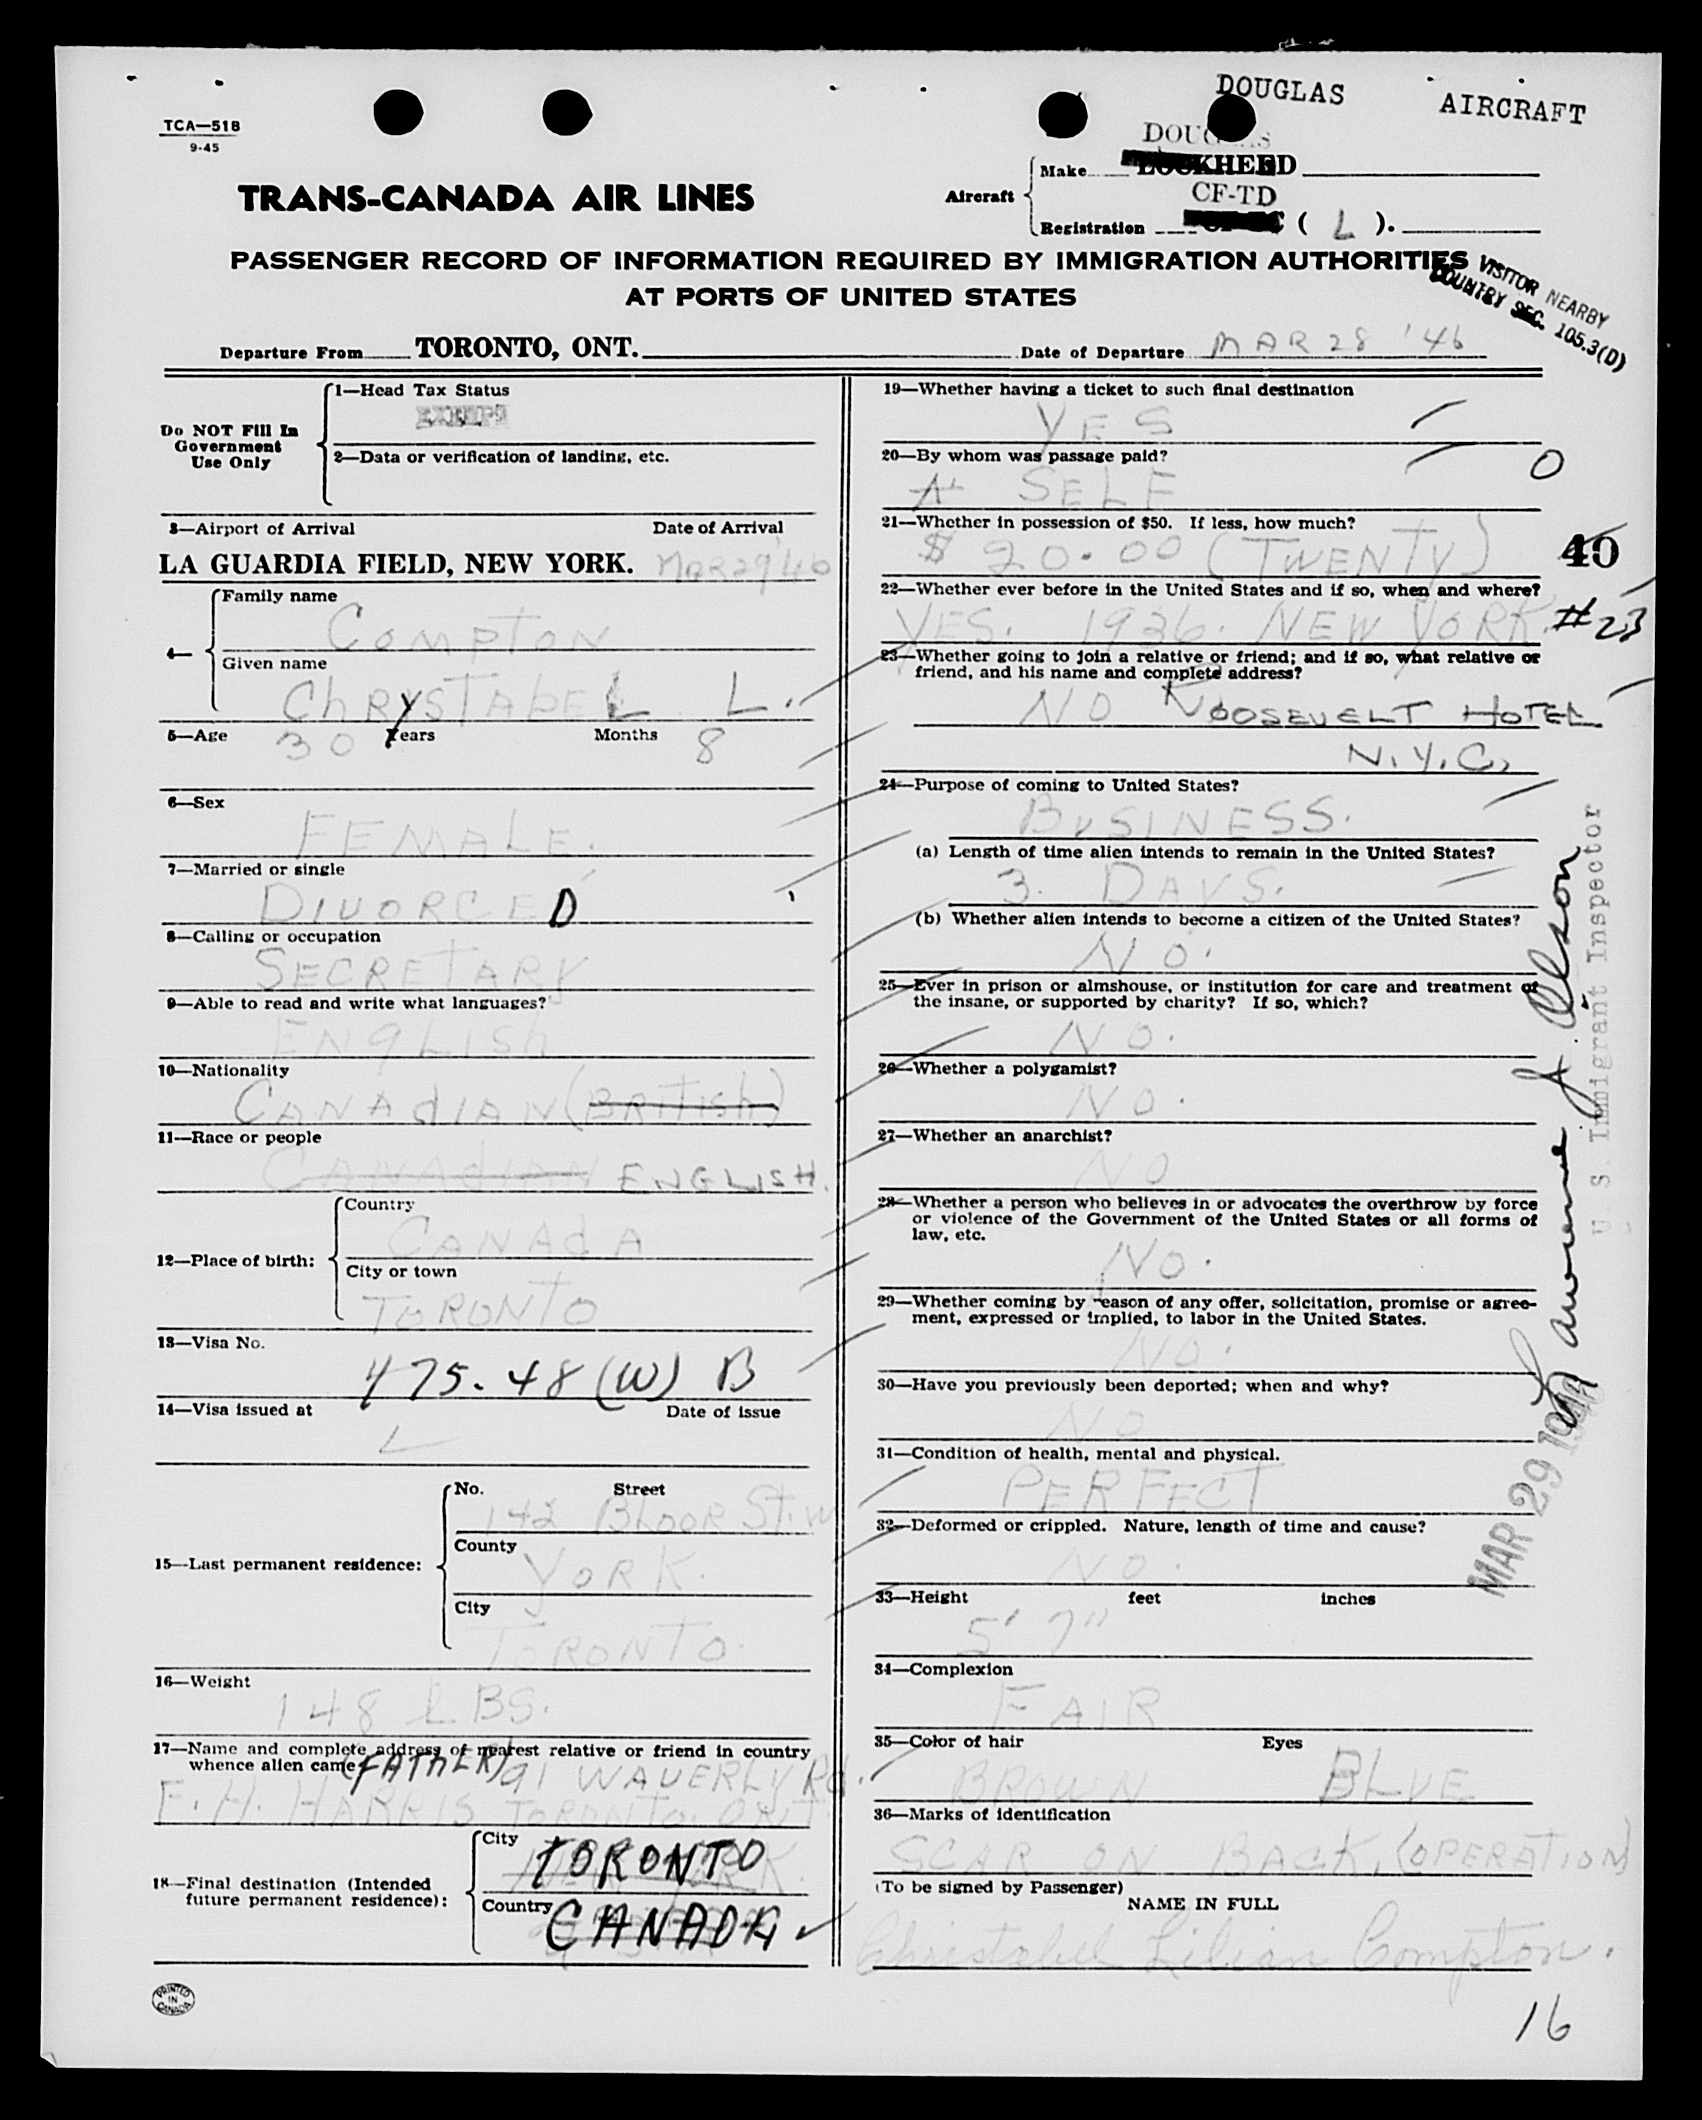 DOUGLAS AIRCRAFT
TCA—518
9-45
DOUGLAS
Make LOCKHEED
TRANS-CANADA AIR LINES
Aircraft
CF-TD
Registration ( L ).
PASSENGER RECORD OF INFORMATION REQUIRED BY IMMIGRATION AUTHORITIES
AT PORTS OF UNITED STATES
VISITOR NEARBY
COUNTRY SEC. 105.3(D)
Departure From TORONTO, ONT. Date of Departure MAR 28 '46
Do NOT Fill In
Government
Use Only
1—Head Tax Status
EXEMPT
2—Data or verification of landing, etc.
3—Airport of Arrival Date of Arrival
LA GUARDIA FIELD, NEW YORK. MAR 29 '46
4—
Family name
COMPTON
Given name
ChRYSTABEL L.
5—Age 30 Years Months 8
6—Sex
FEMALE.
7—Married or single
DIVORCED
8—Calling or occupation
SECRETARY
9—Able to read and write what languages?
ENGLISh
10—Nationality
CANAdIAN (BRITISh)
11—Race or people
CANAdIAN ENGLISH.
12—Place of birth:
Country
CANAdA
City or town
TORONTO
13—Visa No.
475.48 (W) B
14—Visa issued at Date of issue
15—Last permanent residence:
No. Street
142 BLOOR ST. W
County
YORK.
City
TORONTO.
16—Weight
148 LBS.
17—Name and complete address of nearest relative or friend in country
whence alien came (FATHER) 91 WAVERLY Rd.
F. H. HARRIS TORONTO. ONT
18—Final destination (Intended
future permanent residence):
City
NEW YORK.
TORONTO
Country
CANADA
PRINTED
IN
CANADA
19—Whether having a ticket to such final destination
YES
20—By whom was passage paid?
SELF
O
21—Whether in possession of $50. If less, how much?
$ 20.00 (TWENTY)
40
22—Whether ever before in the United States and if so, when and where?
YES. 1936. NEW YORK.
#23
23—Whether going to join a relative or friend; and if so, what relative or
friend, and his name and complete address?
NO ROOSEVELT HOTEL
N.Y.C.
24—Purpose of coming to United States?
BUSINESS.
(a) Length of time alien intends to remain in the United States?
3. DAYS.
(b) Whether alien intends to become a citizen of the United States?
NO.
25—Ever in prison or almshouse, or institution for care and treatment of
the insane, or supported by charity? If so, which?
NO.
26—Whether a polygamist?
NO.
27—Whether an anarchist?
NO
28—Whether a person who believes in or advocates the overthrow by force
or violence of the Government of the United States or all forms of
law, etc.
NO.
29—Whether coming by reason of any offer, solicitation, promise or agree-
ment, expressed or implied, to labor in the United States.
NO.
30—Have you previously been deported; when and why?
NO
31—Condition of health, mental and physical.
PERFECT
32—Deformed or crippled. Nature, length of time and cause?
NO.
33—Height feet inches
5' 7"
34—Complexion
FAIR
35—Color of hair Eyes
BROWN BLUE
36—Marks of identification
SCAR ON BACK. (OPERATION)
(To be signed by Passenger)
NAME IN FULL
Christabel Lilian Compton.
16
Lawrence J. Olson
U. S. Immigrant Inspector
MAR 29 1946